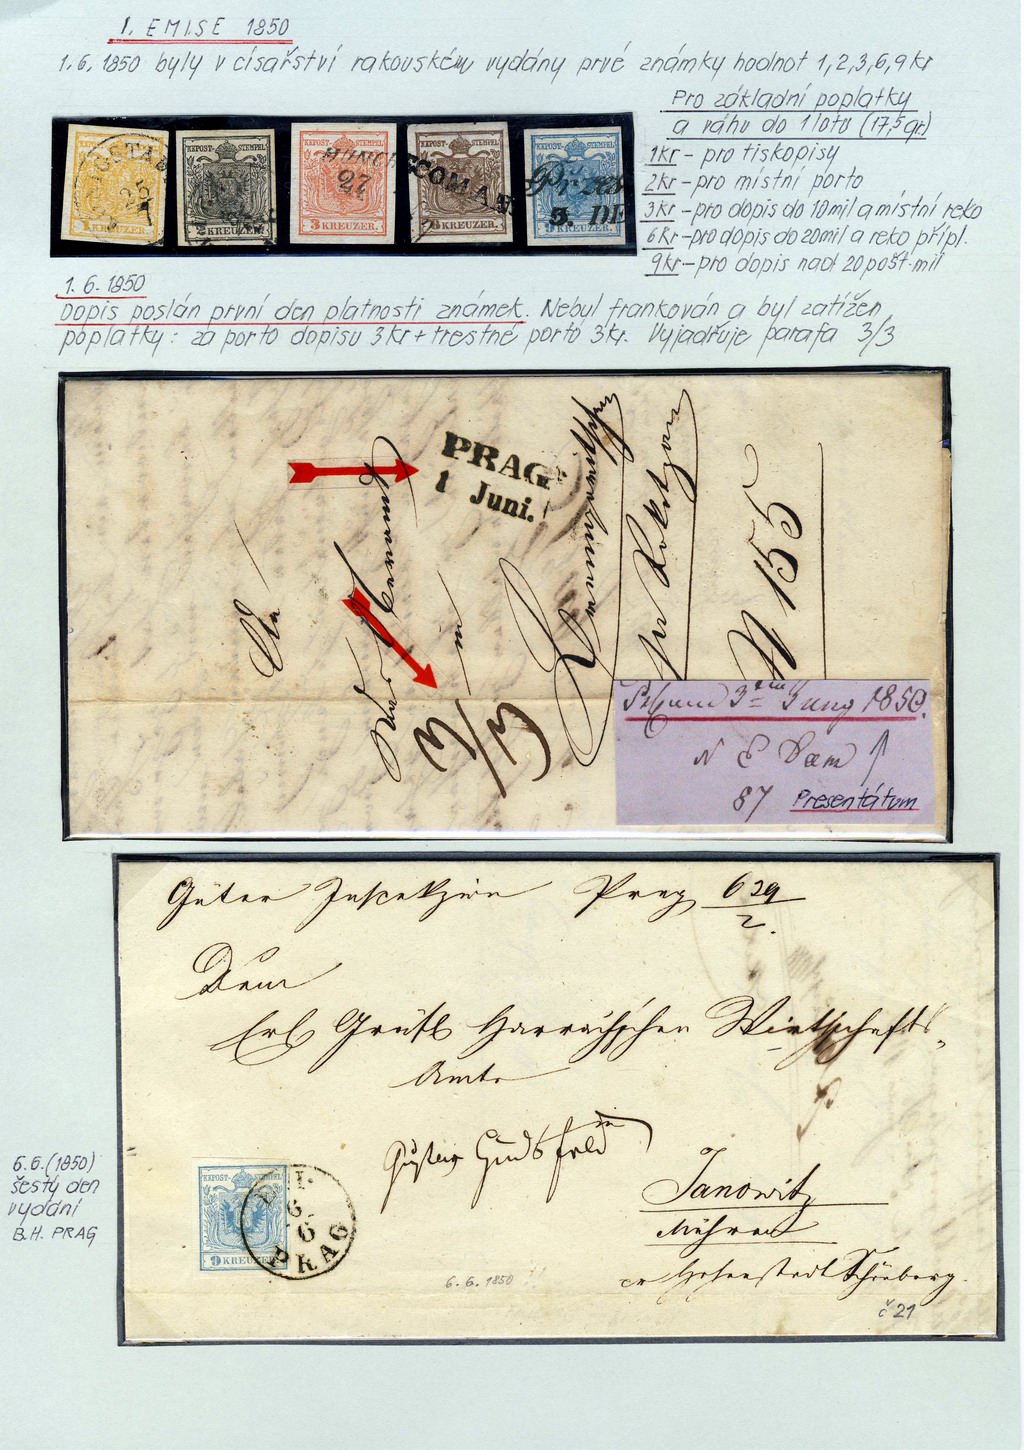 I. EMISE 1850
1.6.1850 byly v císařství rakouském vydány prvé známky hodnot 1,2,3,6,9kr
Pro základní poplatky
a váhu do 1 lotu (17,5 gr)
1kr - pro tiskopisy
2kr - pro místní porto
3kr - pro dopis do 10 mil a místní reko
6kr - pro dopis do 20 mil a reko přípl.
9kr - pro dopis nad 20 pošt. mil
KK POST-STEMPEL
1 KREUZER.
KKPOST-STEMPEL
2 KREUZER.
KKPOST-STEMPEL
27
3 KREUZER.
KKPOST-STEMPEL
RECOMAN
KKPOST-STEMPEL
5. DE
9 KREUZER.
1.6.1850
Dopis poslán první den platnosti známek. Nebyl frankován a byl zatížen
poplatky: za porto dopisu 3kr + trestné porto 3kr. Vyjadřuje parafa 3/3
PRAG
1 Juni.
3/3
N 155
1850.
87 Presentátum
Güter Inspekzion Prag 639/2.
Dem
Erl Gräfl Harrachschen Wirtschafts-
Amte
Janowitz
Mähren
6.6.(1850)
šestý den
vydání
B.H. PRAG
KKPOST-STEMPEL
9 KREUZER.
B.H.
6.
6
PRAG
6.6.1850
č 21